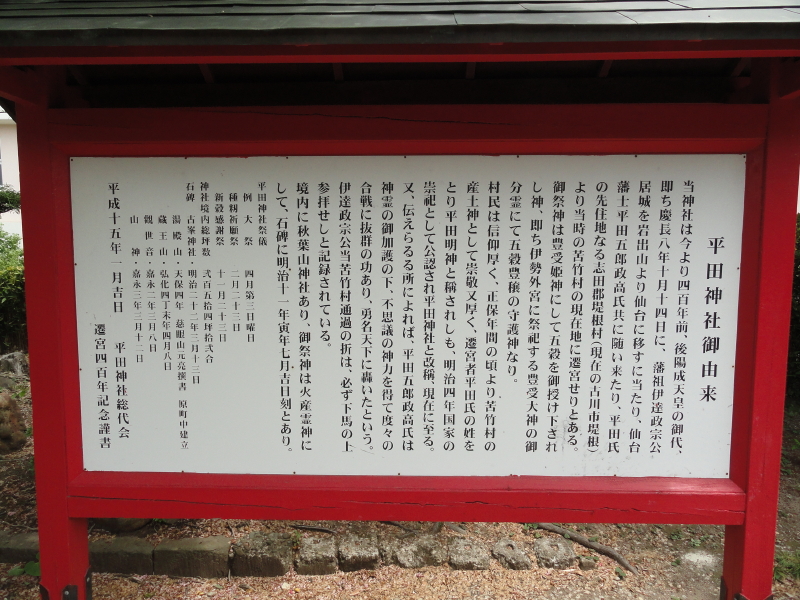 平田神社御由来
当神社は今より四百年前、後陽成天皇の御代、
即ち慶長八年十月十四日に、藩祖伊達政宗公
居城を岩出山より仙台に移すに当たり、仙台
藩士平田五郎政高氏共に随い来たり、平田氏
の先住地なる志田郡堤根村(現在の古川市堤根)
より当時の苦竹村の現在地に遷宮せりとある。
御祭神は豊受姫神にして五穀を御授け下され
し神、即ち伊勢外宮に祭祀する豊受大神の御
分霊にて五穀豊穣の守護神なり。
村民は信仰厚く、正保年間の頃より苦竹村の
産土神として崇敬又厚く、遷宮者平田氏の姓を
とり平田明神と称されしも、明治四年国家の
崇祀として公認され平田神社と改稱、現在に至る。
又、伝えらるる所によれば、平田五郎政高氏は
神霊の御加護の下、不思議の神力を得て度々の
合戦に抜群の功あり、勇名天下に轟いたという。
伊達政宗公当苦竹村通過の折は、必ず下馬の上
参拝せしと記録されている。
境内に秋葉山神社あり、御祭神は火産霊神に
して、石碑に明治十一年寅年七月吉日刻とあり。
平田神社祭儀
例大祭 四月第三日曜日
種籾祈願祭 二月二十三日
新穀感謝祭 十一月二十三日
神社境内総坪数 弐百五拾四坪拾弐合
石碑 古峯神社・明治二十二年三月十三日
湯殿山・天保四年 慈眼山元亮撰書 原町中建立
蔵王山・弘化四丁未年四月八日
観世音・嘉永二年三月八日
山神・嘉永三年三月十二日
平成十五年一月吉日 平田神社総代会
遷宮四百年記念謹書